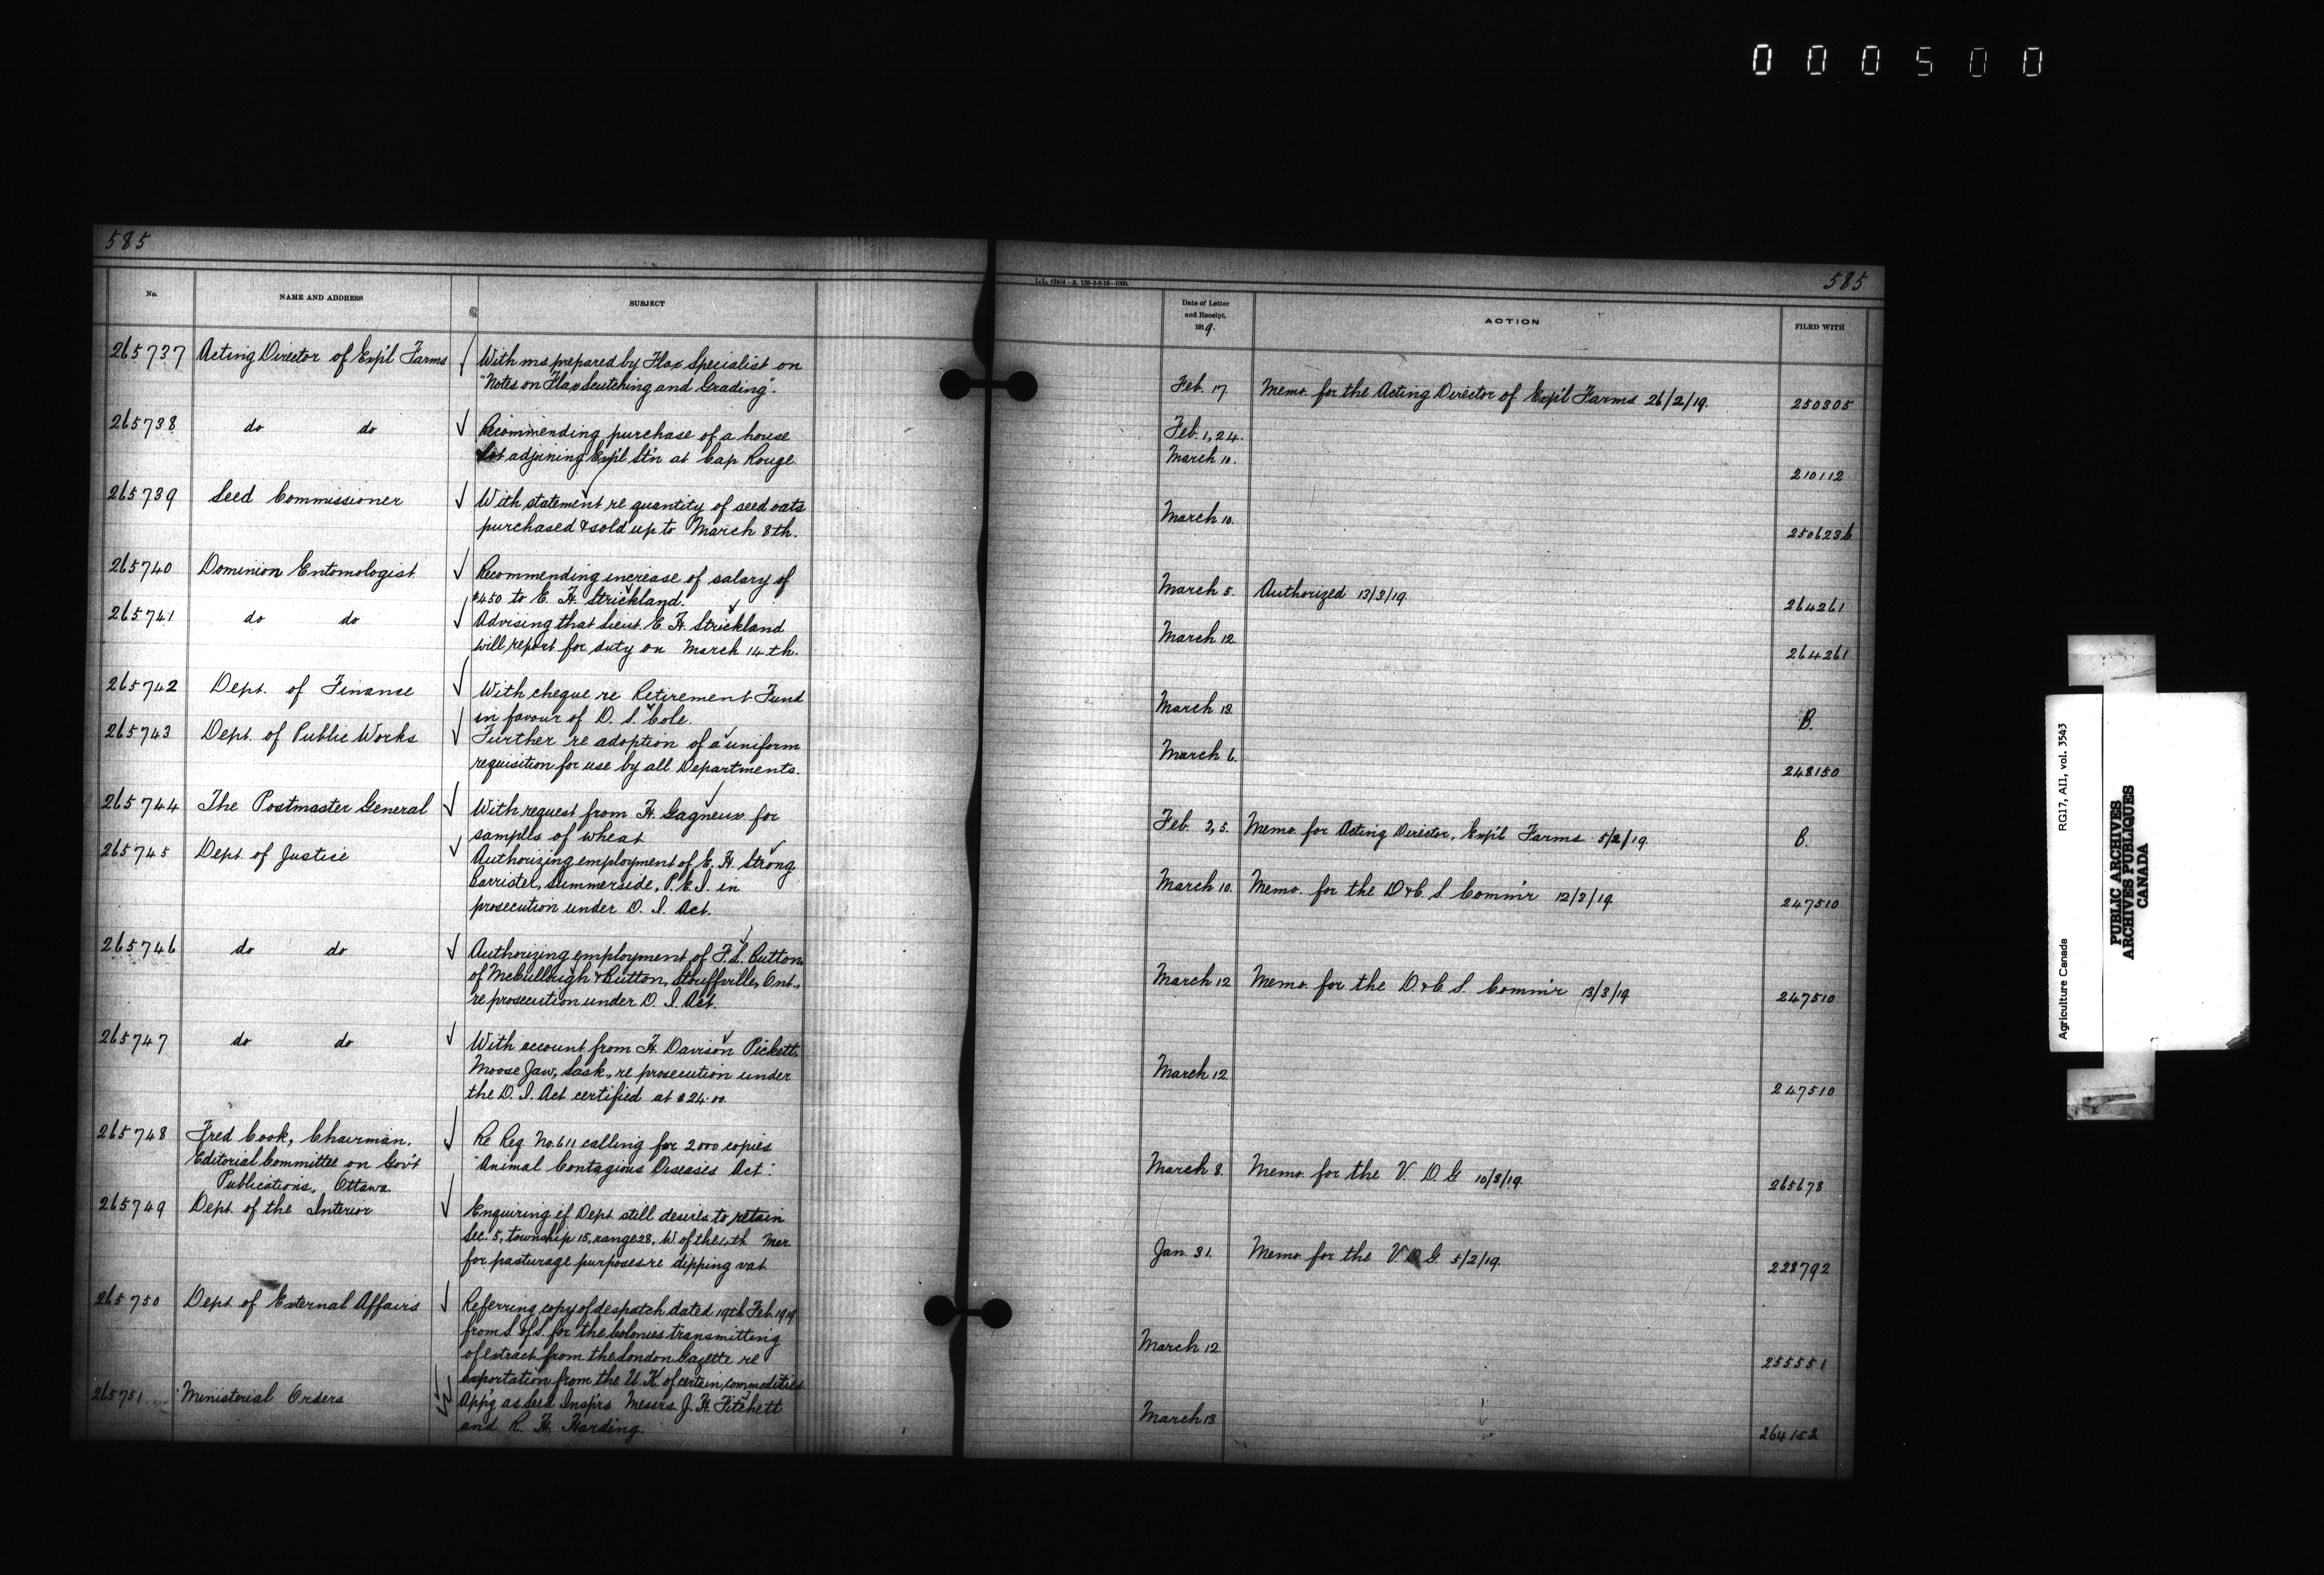 000500
585
No.
NAME AND ADDRESS
SUBJECT
265737 Acting Director of Exp'l Farms
With ms prepared by Flax Specialist on
"Notes on Flax Scutching and Grading".
265738 do do
Recommending purchase of a house
lot adjoining Exp'l St'n at Cap Rouge.
265739 Seed Commissioner
With statement re quantity of seed oats
purchased & sold up to March 8th.
265740 Dominion Entomologist
Recommending increase of salary of
$450 to E. H. Strickland.
265741 do do
Advising that Lieut. E. H. Strickland
will report for duty on March 14th.
265742 Dept. of Finance
With cheque re Retirement Fund
in favour of D. S. Cole.
265743 Dept. of Public Works
Further re adoption of a uniform
requisition for use by all Departments.
265744 The Postmaster General
With request from H. Gagneux for
samples of wheat
265745 Dept. of Justice
Authorizing employment of E. H. Strong,
Barrister, Summerside, P.E.I. in
prosecution under D. I. Act.
265746 do do
Authorizing employment of F. L. Button,
of McCullough & Button, Stouffville, Ont.,
re prosecution under D. I. Act.
265747 do do
With account from H. Davison Pickett,
Moose Jaw, Sask., re prosecution under
the D. I. Act certified at $24.00.
265748 Fred Cook, Chairman,
Editorial Committee on Gov't
Publications, Ottawa.
Re Req. No. 611 calling for 2000 copies
"Animal Contagious Diseases Act".
265749 Dept. of the Interior
Enquiring if Dept still desires to retain
Sec. 5, township 15, range 28, W. of the 4th Mer.
for pasturage purposes re dipping vat
265750 Dept. of External Affairs
Referring copy of despatch dated 19th Feb. 1919
from S. of S. for the Colonies transmitting
of extract from the London Gazette re
exportation from the U. K. of certain commodities.
265751 Ministerial Orders
App'g as Seed Insp'rs Messrs J. H. Fitchett
and R. H. Harding.
585
Date of Letter
and Receipt,
1919.
ACTION
FILED WITH
Feb. 17. Memo. for the Acting Director of Exp'l Farms 26/2/19. 250305
Feb. 1, 24.
March 10. 210112
March 10. 250623b
March 5. Authorized 13/3/19. 264261
March 12. 264261
March 13. B.
March 6. 248150
Feb. 3, 5. Memo. for Acting Director, Exp'l Farms 5/2/19. B.
March 10. Memo. for the D & C. S. Comm'r 12/3/19. 247510
March 12 Memo. for the D & C S. Comm'r 13/3/19 247510
March 12. 247510
March 8. Memo. for the V. D. G 10/3/19. 265678
Jan. 31. Memo for the V. D. G. 5/2/19. 228792
March 12. 255551
March 13. 264152
Agriculture Canada RG17, AI1, vol. 3543
PUBLIC ARCHIVES
ARCHIVES PUBLIQUES
CANADA